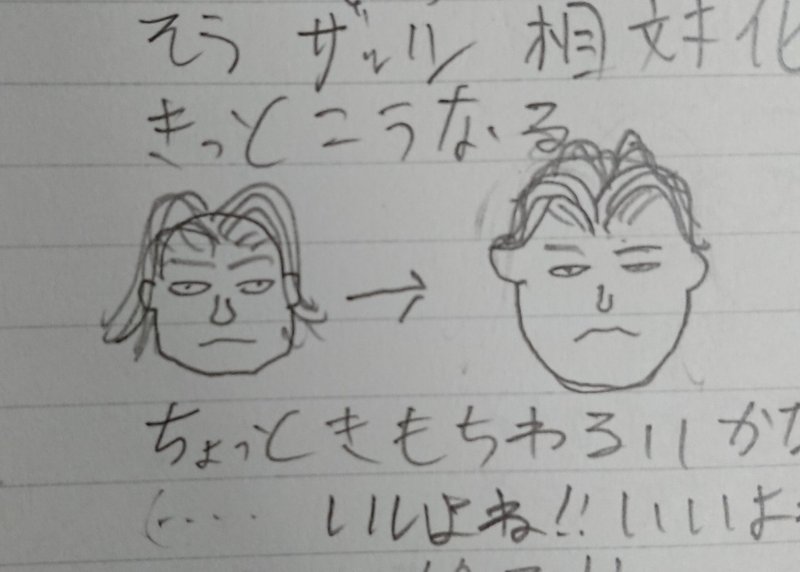 そう ザッツ 相対化
きっとこうなる
ちょっときもちわるいかな
(‥‥ いいよね!! いいよ